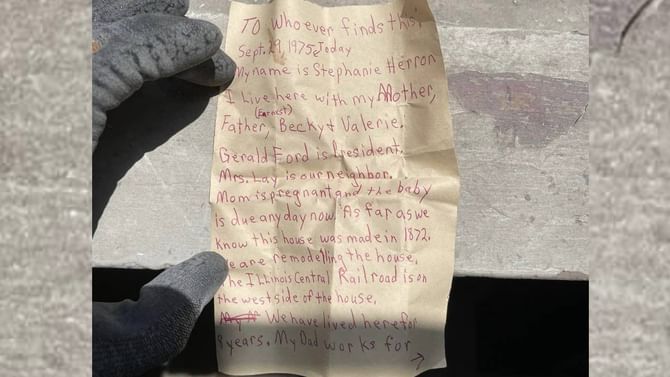 To Whoever finds this,
Sept. 29, 1975 Today
My name is Stephanie Herron
I Live here with my Mother,
(Earnest)
Father, Becky + Valerie.
Gerald Ford is President.
Mrs. Lay is our neighbor.
Mom is pregnant and the baby
is due any day now. As far as we
know this house was made in 1872.
We are remodelling the house.
The ILLinois Central Railroad is on
the west side of the house.
We have lived here for
8 years. My Dad works for →